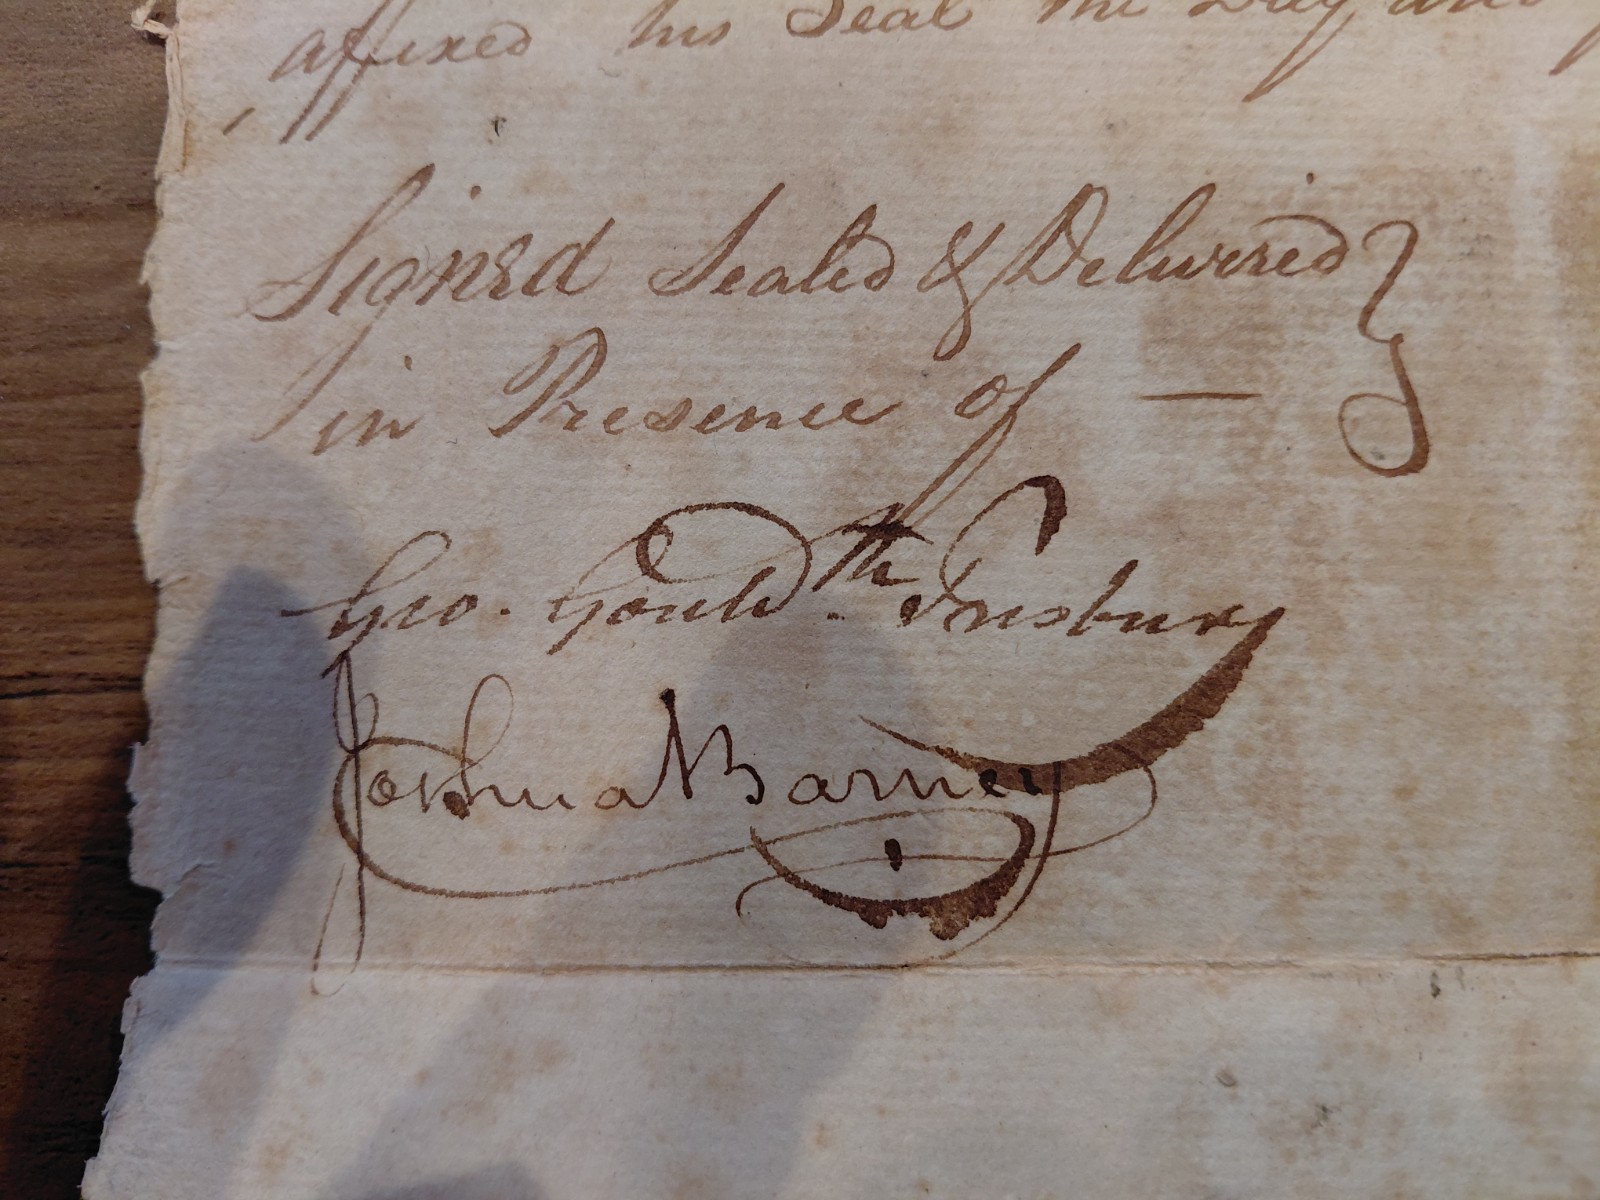 affixed his Seal the Day and
Signed Sealed & Delivered
in Presence of —
Geo. Gould.th Presbury
Joshua Barney